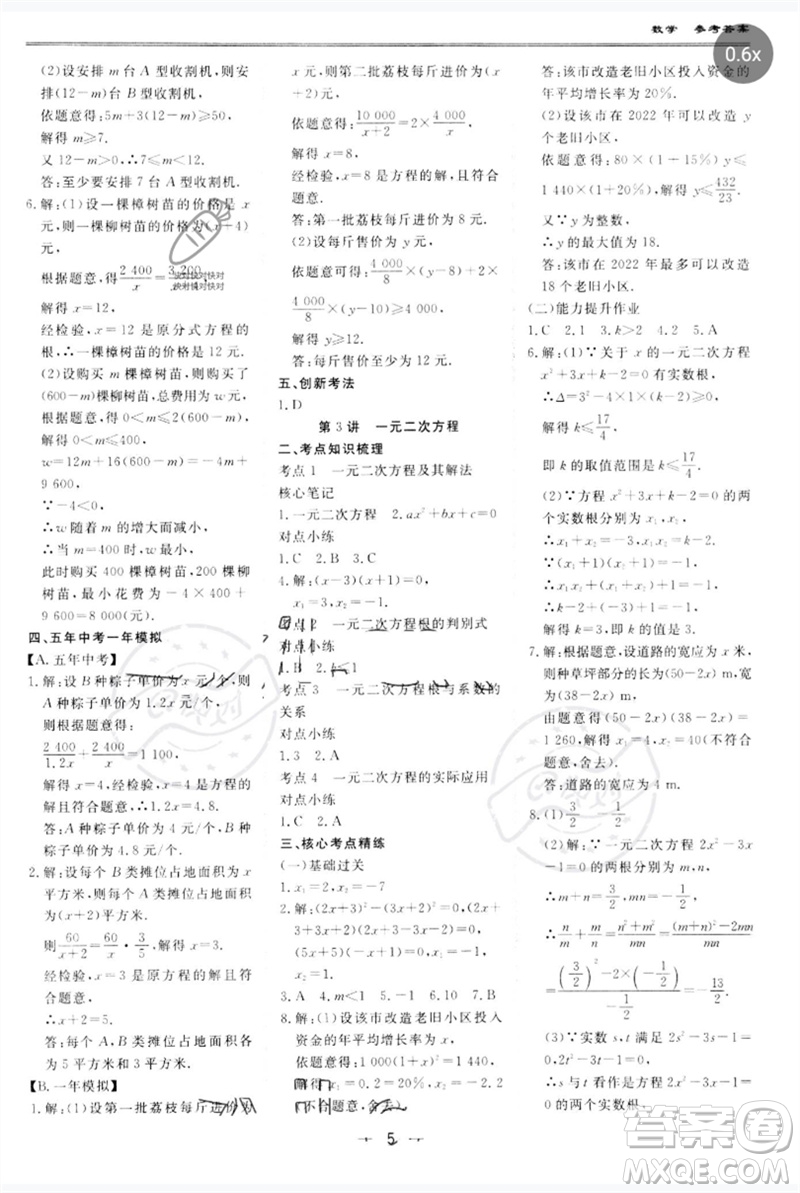 数学 参考答案
0.6x
(2)设安排 m 台 A 型收割机,则安
排(12-m)台 B 型收割机.
依题意得:5m+3(12-m)≥50,
解得 m≥7.
又 12-m>0,∴7≤m<12.
答:至少要安排 7 台 A 型收割机.
6.解:(1)设一棵樟树苗的价格是 x
元,则一棵柳树苗的价格为(x+4)
元,
根据题意,得2 400/x=3 200/
快对快对快对
快对快对快对
解得 x=12,
经检验,x=12 是原分式方程的
根,∴一棵樟树苗的价格是 12 元.
(2)设购买 m 棵樟树苗,则购买了
(600-m)棵柳树苗,总费用为 w 元.
根据题意得 0<m≤2(600-m),
解得 0<m≤400.
w=12m+16(600-m)=-4m+
9 600,
∵-4<0,
∴w 随着 m 的增大而减小,
∴当 m=400 时,w最小,
此时购买 400 棵樟树苗,200 棵柳
树苗,最小花费为-4×400+
9 600=8 000(元).
四、五年中考一年模拟
【A.五年中考】
1.解:设 B 种粽子单价为 x 元/个,则
A 种粽子单价为 1.2x 元/个,
则根据题意得:
2 400/1.2x+2 400/x=1 100,
解得 x=4,经检验,x=4 是方程的
解且符合题意,∴1.2x=4.8.
答:A 种粽子单价为 4.8 元/个,B
种粽子单价为 4 元/个.
2.解:设每个 A 类摊位占地面积为 x
平方米,则每个 B 类摊位占地面积
为(x+2)平方米.
则60/x=60/(x+2)·3/5,解得 x=3.
经检验,x=3 是原方程的解且符
合题意.
∴x+2=5.
答:每个 A,B 类摊位占地面积各
为 5 平方米和 3 平方米.
【B.一年模拟】
1.解:(1)设第一批荔枝每斤进价为 x
元,则第二批荔枝每斤进价为(x
+2)元.
依题意得:10 000/(x+2)=2×4 000/x,
解得 x=8,
经检验,x=8 是方程的解且符合
题意.
答:第一批荔枝每斤进价为 8 元.
(2)设每斤售价为 y 元,
依题意可得:4 000/8×(y-8)+2×
4 000/8×(y-8-2)≥4 000,
解得 y≥12.
答:每斤售价至少为 12 元.
五、创新考法
1.D
第 3 讲 一元二次方程
二、考点知识梳理
考点 1 一元二次方程及其解法
核心笔记
1.一元二次方程 2.ax²+bx+c=0
对点小练
1.C 2.B 3.C
4.解:(x-3)(x-1)=0,
x₁=3,x₂=1.
考点 2 一元二次方程根的判别式
对点小练
1.B 2.k≤1
考点 3 一元二次方程根与系数的
关系
对点小练
1.3 2.A
考点 4 一元二次方程的实际应用
对点小练
1.A
三、核心考点精练
(一)基础过关
1.x₁=0,x₂=-7
2.解:(2x+3)²-(3x+2)²=0,
(2x+3+3x+2)(2x+3-3x-2)=0,
(5x+5)(-x+1)=0,
x₁=-1,x₂=1.
3.A 4.m<1 5.-1 6.10 7.B
8.解:(1)设该市改造老旧小区投入
资金的年平均增长率为 x,
依题意得:1 000(1+x)²=1 440,
解得 x₁=0.2=20%,x₂=-2.2
(不符合题意,舍去).
答:该市改造老旧小区投入资金的
年平均增长率为 20%.
(2)设该市在 2022 年可以改造 y
个老旧小区,
依题意得:80×(1+15%)y≤
1 440×(1+20%),解得 y≤432/23.
又∵y 为整数,
∴y 的最大值为 18.
答:该市在 2022 年最多可以改造
18 个老旧小区.
(二)能力提升作业
1.C 2.1 3.k>2 4.2 5.A
6.解:(1)∵关于 x 的一元二次方程
x²+3x+k-2=0 有实数根,
∴Δ=3²-4×1×(k-2)≥0,
解得 k≤17/4,
即 k 的取值范围是 k≤17/4.
(2)∵方程 x²+3x+k-2=0 的两
个实数根分别为 x₁,x₂,
∴x₁+x₂=-3,x₁x₂=k-2.
∵(x₁+1)(x₂+1)=-1,
∴x₁x₂+(x₁+x₂)+1=-1,
∴k-2-3+1=-1,
解得 k=3.
7.解:设道路的宽应为 x 米,
则种草坪部分的长为(50-2x)米,
宽为(38-2x)米,
由题意得(50-2x)(38-2x)=
1 260,解得:x₁=4,x₂=40(不符合
题意,舍去).
答:道路的宽应为 4 m.
8.(1)3/2 -1/2
(2)解:∵一元二次方程 2x²-3x-1=0
的两根分别为 m,n,
∴m+n=3/2,mn=-1/2,
∴n/m+m/n=(n²+m²)/mn=((m+n)²-2mn)/mn
=((3/2)²-2×(-1/2))/(-1/2)=-13/2.
(3)∵实数 s,t 满足 2s²-3s-1=
0,2t²-3t-1=0,且 s≠t,
∴s 与 t 看作是方程 2x²-3x-1=
0 的两个实数根,
5
答案圈
MXQE.COM